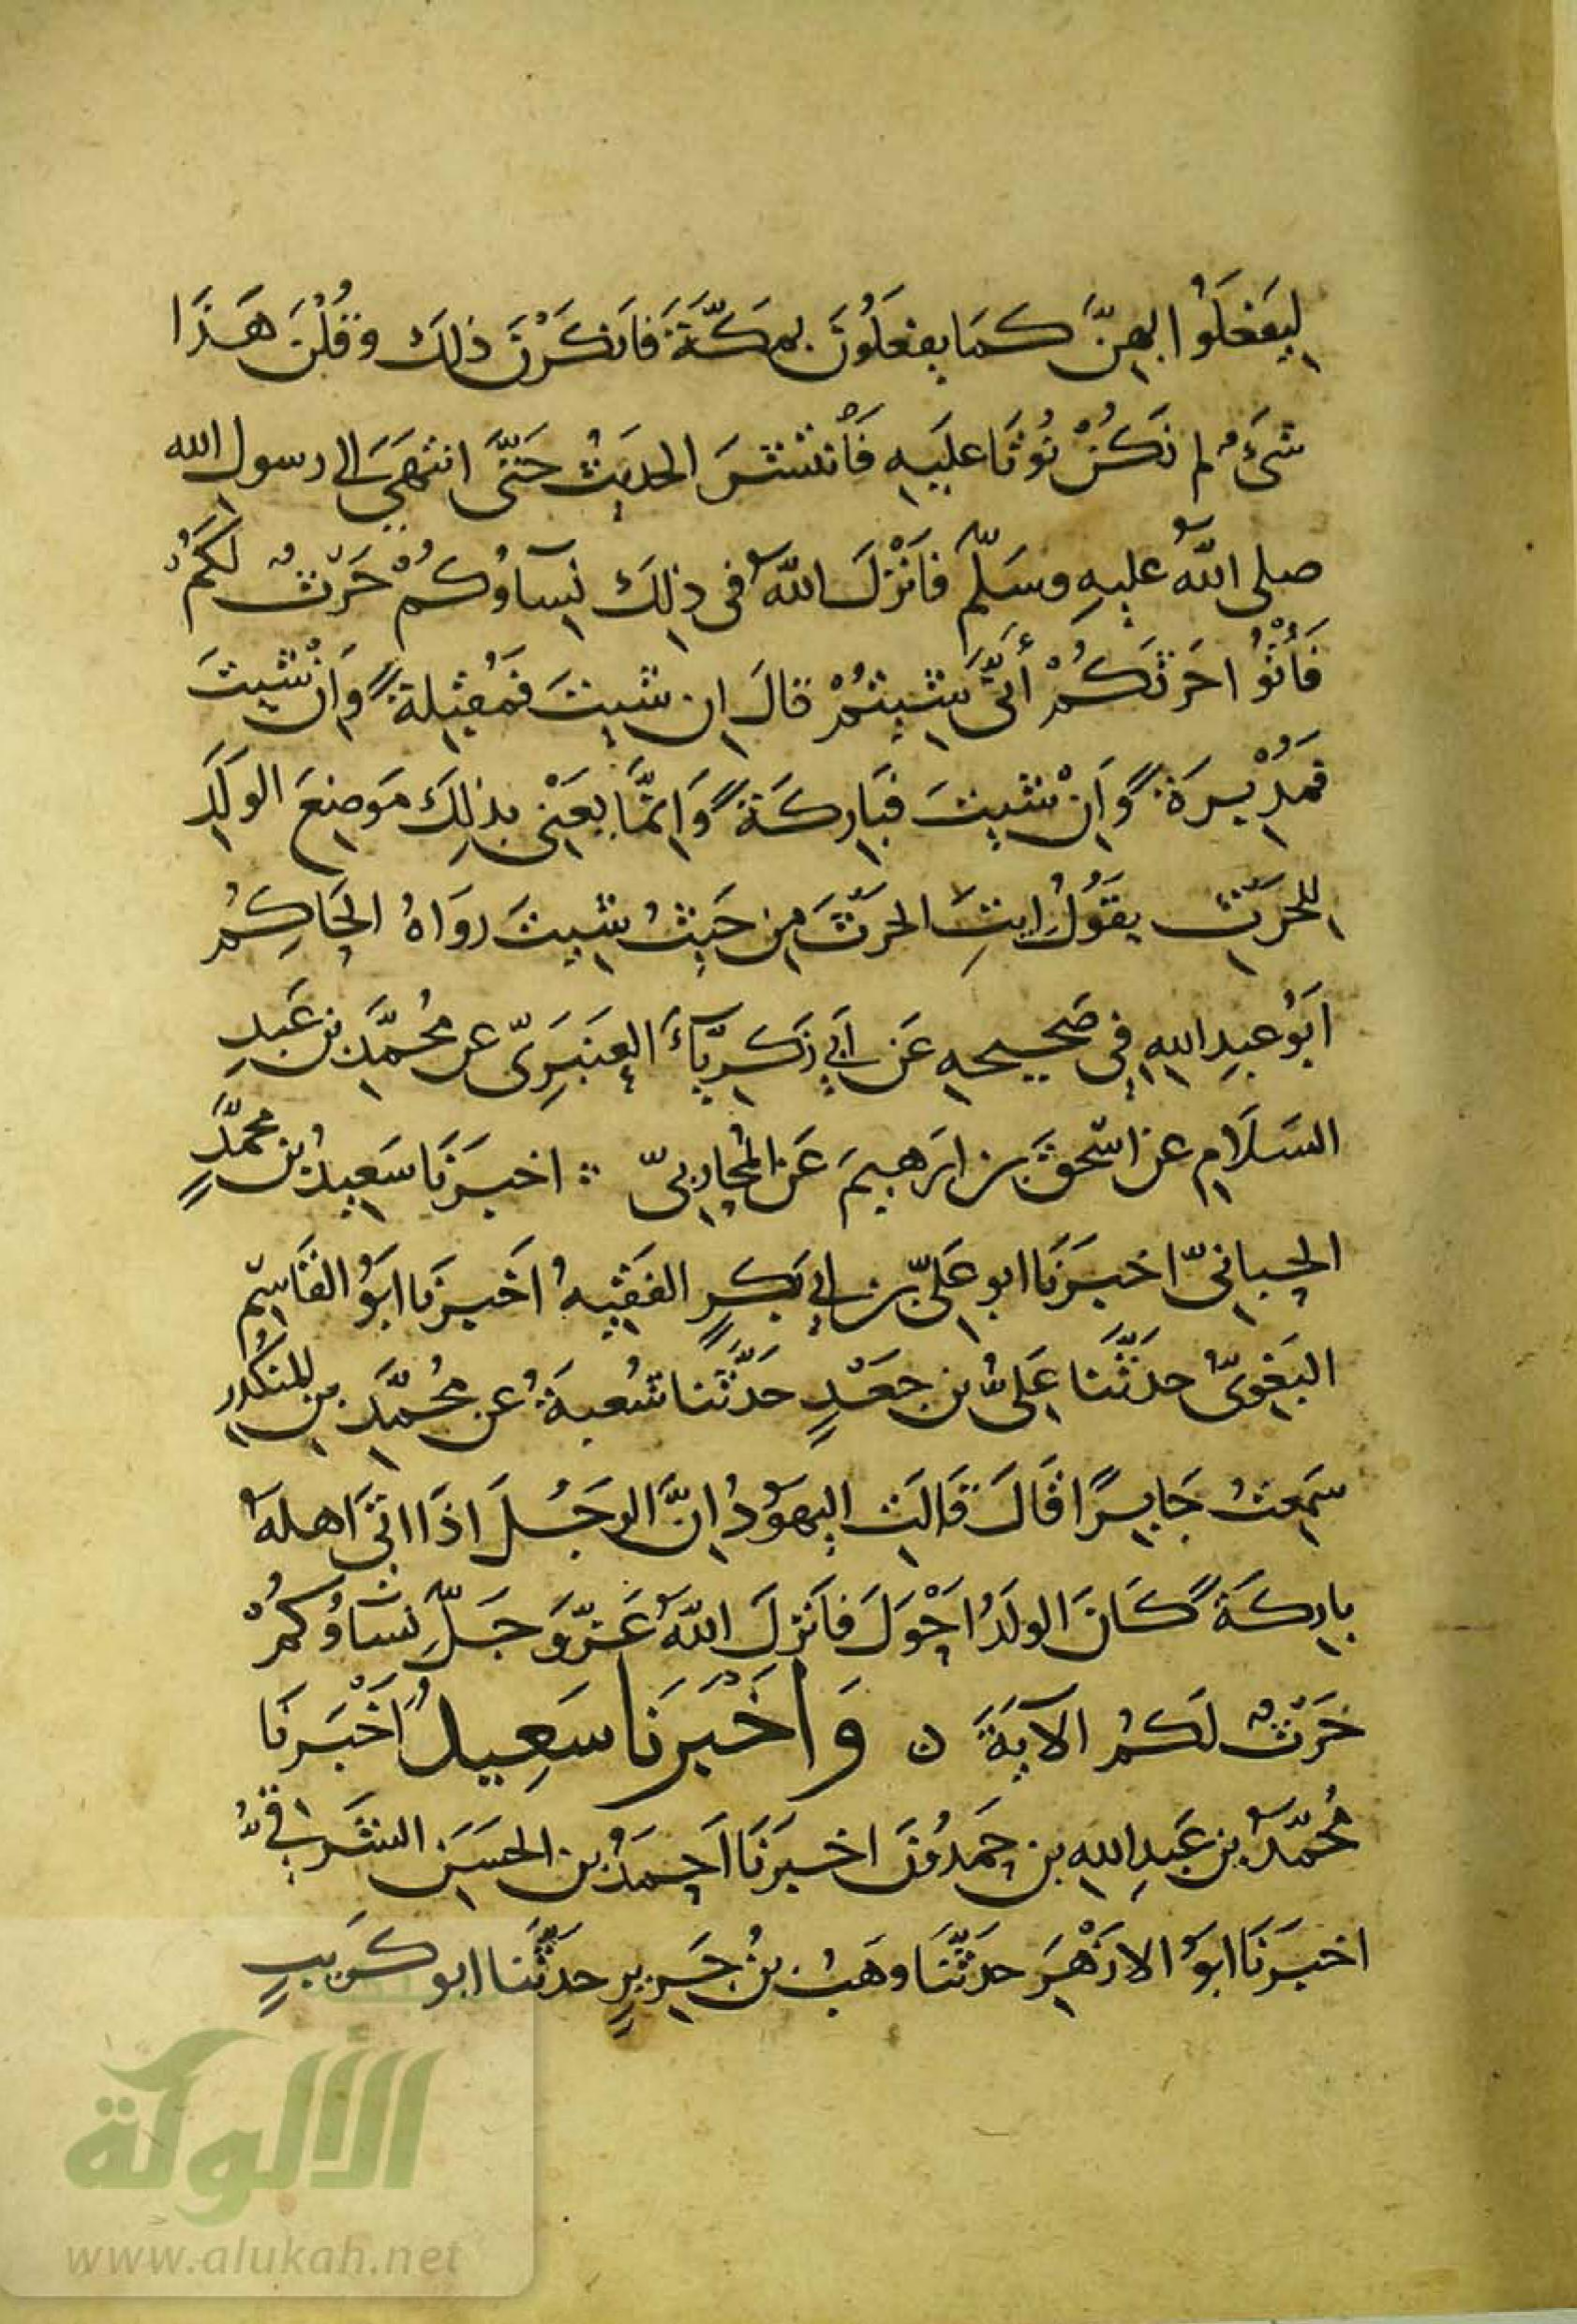 لِيَفْعَلُوا بِهِنَّ كَمَا يَفْعَلُونَ بِمَكَّةَ فَأَنكَرْنَ ذٰلِكَ وَقُلْنَ هَذَا
شَيْءٌ لم نَكُنْ نُوتَا عليهِ فَأنتشَرَ الحديثُ حَتَّى انتهَى إلى رسول الله
صلى اللهُ عليهِ وسَلّم فَانْزلَ اللهُ في ذلِكَ نِسَآؤُكُمْ حَرْثٌ لَكُمْ
فَأْتُوا حَرْثَكُمْ أَنَّى شِيتُمْ قالَ اِن شيتَ فمُقبِلةً وَاِنْ شيتَ
فمُدْبِرَةً وَاِنْ شيتَ فبَارِكَةً وَاِنَّمَا يَعْنِي بذلِكَ مَوضِعَ الولَدِ
لِلحَرْثِ يقُولُ ايتِ الحَرْثَ مِن حَيثُ شيتَ روَاهُ الحَاكِمُ
ابُو عبدِ اللهِ في صَحيحهِ عَن ابي زَكَريَّآءَ العنبَرِيّ عن مُحمَّد بن عَبدِ
السَلَامِ عن اسحٰقَ بن ابرهيمَ عَن المُحاربيّ ∴ اخبرَنَا سَعِيدُ بن محمَّدٍ
الحِيانيّ اخبرَنَا ابو عَليّ بن ابي بَكرٍ الفقيهُ اَخبرَنا ابُو القاسِم
البَغويّ حدَثَنَا عَليُّ بن جَعْدٍ حَدَّثَنا شُعبةُ عن مُحمَّد بن المنكدِر
سَمِعتُ جَابِرًا قَالَ قَالَتِ اليهوُدُ اِنَّ الرجُلَ اذَا اتَى اَهلهُ
بارِكَةً كَانَ الولَدُ احْوَلَ فَانْزلَ اللهُ عَزَّ وَجَلَّ نسَاؤُكمْ
حَرْثٌ لَكُم الآيَةَ ن وَاَخْبَرَنَا سَعِيدٌ اَخْبَرنَا
مُحمّدُ بن عَبدِ اللهِ بن حَمدُونَ اخبرَنَا اَحمَدُ بن الحسَن الشَرقيُّ
اخبرَنَا ابُو الازْهَرِ حدَثَنَا وهَبُ بنُ جَرِيرٍ حدَثَنا ابو كُرَيبٍ
الألوكة
www.alukah.net